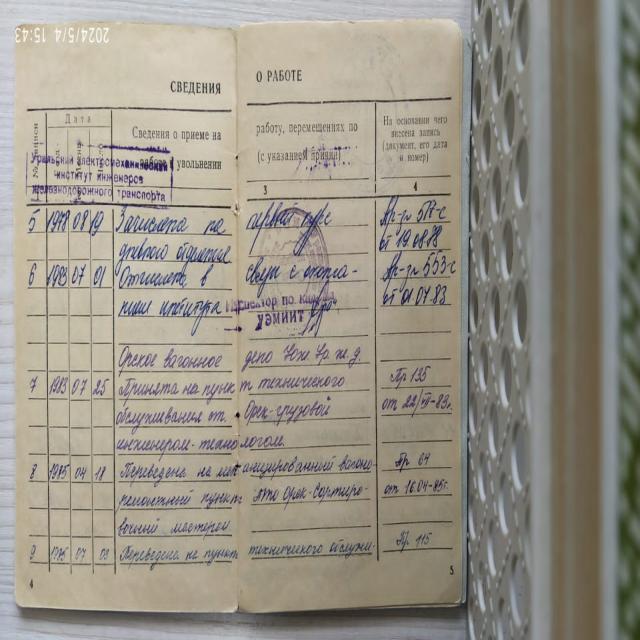 2024/5/4 15:43
СВЕДЕНИЯ О РАБОТЕ
Дата
Сведения о приеме на работу, перемещениях по работе и увольнении (с указанием причин)
На основании чего внесена запись (документ, его дата и номер)
3 4
Уральский электромеханический
институт инженеров
железнодорожного транспорта
5 1978 08 19 Зачислена на первый курс Пр-з 517-с
дневного обучения от 19.08.78
6 1983 07 01 Отчислена в связи с оконча- Пр-з 553-с
нием института от 01.07.83
Инспектор по кадрам
УЭМИИТ
Орское вагонное депо Юж. Ур. ж. д.
7 1983 07 25 Принята на пункт технического Пр 135
обслуживания ст. Орск-грузовой от 22/VII-83г.
инженером-технологом.
8 1985 04 18 Переведена на механизированный вагоно- Пр 64
ремонтный пункт ст. Орск-Сортиро- от 16.04-85г.
вочный мастером
9 1985 07 Переведена на пункт технического обслужи- Пр 115
4 5